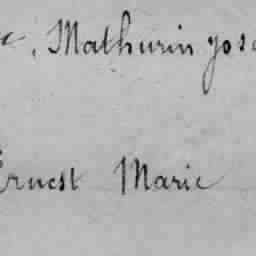 Mathurin
Ernest Marie